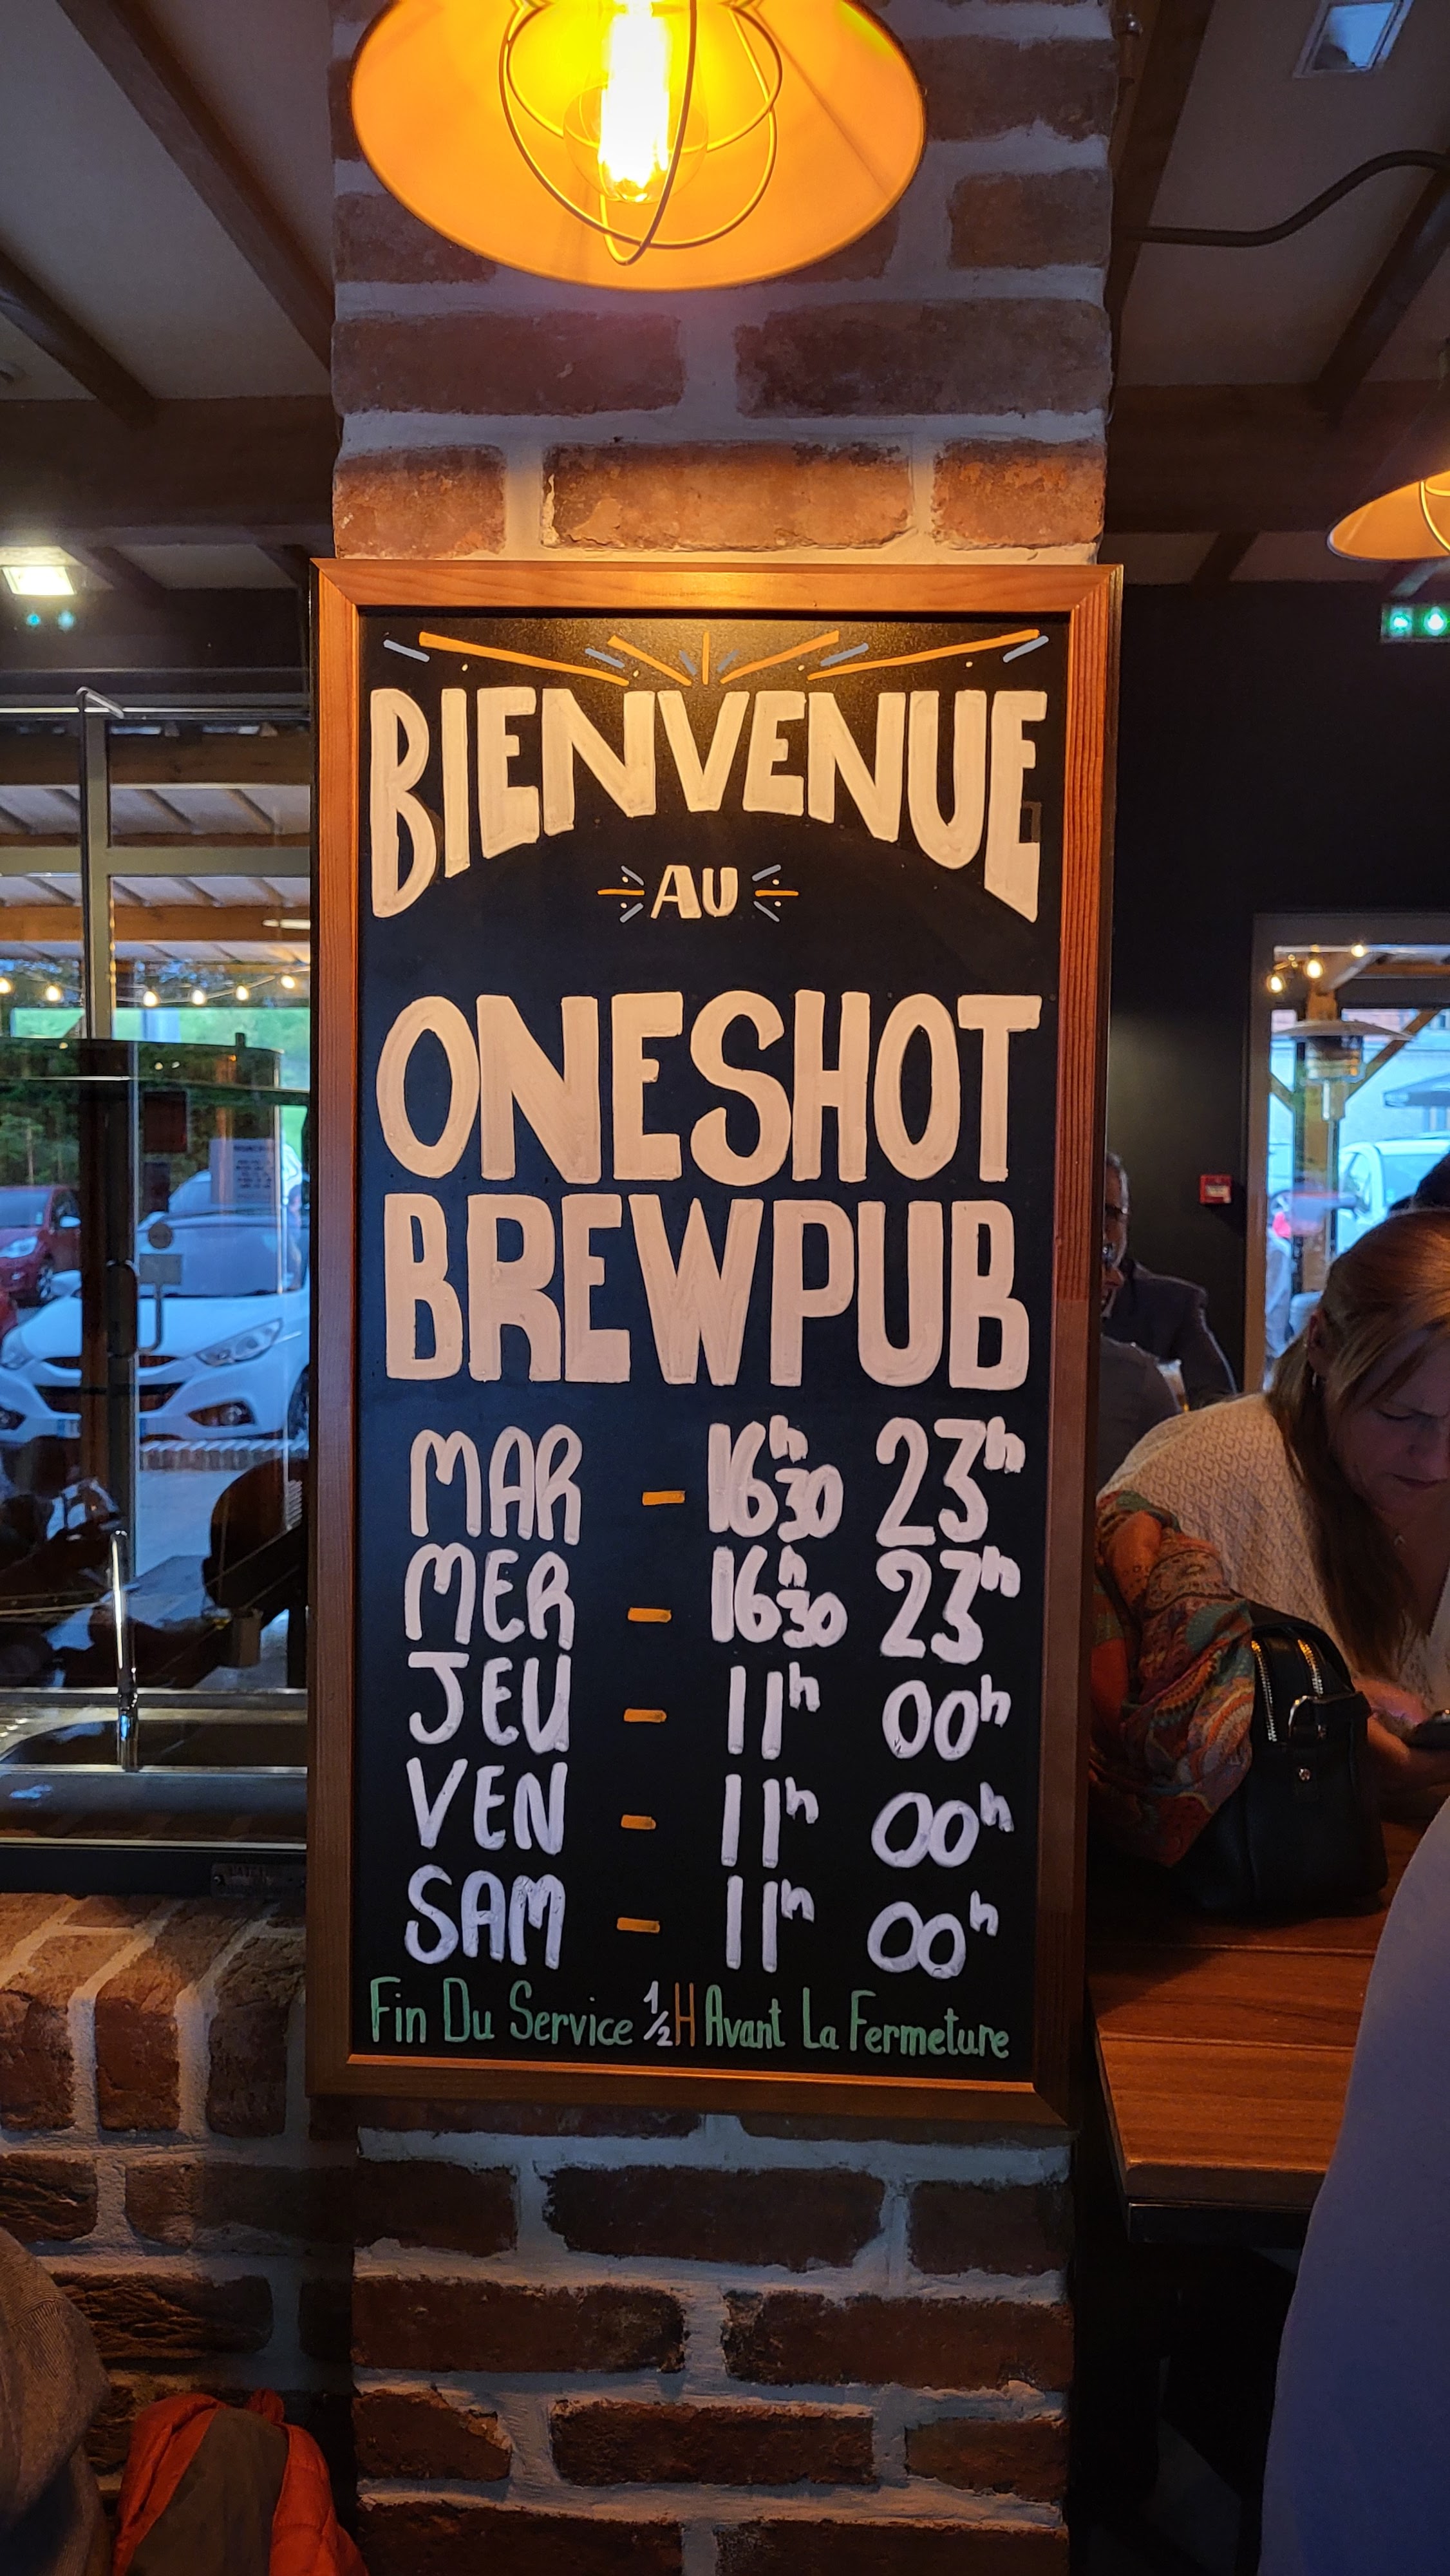 BIENVENUE
AU
ONESHOT
BREWPUB
MAR - 16h30 23h
MER - 16h30 23h
JEU - 11h 00h
VEN - 11h 00h
SAM - 11h 00h
Fin Du Service 1/2H Avant La Fermeture